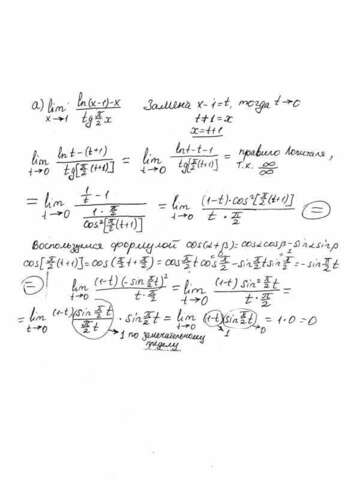 а) lim x→1 ln(x-1)-x / tg π/2 x   Замена x-1=t, тогда t→0
t+1=x
x=t+1
lim t→0 lnt-(t+1) / tg[π/2(t+1)] = lim t→0 lnt-t-1 / tg[π/2(t+1)] = правило Лопиталя, т.к. ∞/∞
= lim t→0 (1/t - 1) / (1·π/2 / cos²[π/2(t+1)]) = lim t→0 (1-t)·cos²[π/2(t+1)] / t·π/2 =
Воспользуемся формулой cos(α+β)=cosαcosβ-sinαsinβ
cos[π/2(t+1)]=cos(π/2t+π/2)=cosπ/2t cosπ/2-sinπ/2t sinπ/2=-sinπ/2t
= lim t→0 (1-t)(-sinπ/2t)² / t·π/2 = lim t→0 (1-t) sin²π/2t / t·π/2 =
= lim t→0 (1-t) sinπ/2t / π/2t · sinπ/2t = lim t→0 (1-t)(sinπ/2t) = 1·0=0
→1 по замечательному пределу   1   →0